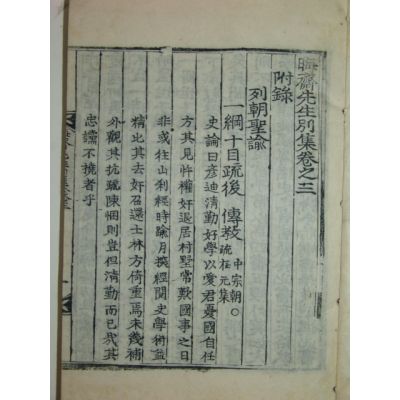 晦齋先生別集卷之三
附錄
列朝聖諭
一綱十目疏後 傳敎 中宗朝○疏在元集
史論曰彦迪清勤好學以愛君憂國自任
方其見忤權奸退居村墅常歎國事之日
非或往山利經時踰月經閱史學術益
精比其去奸召還士林方倚重焉未幾補
外觀其抗疏陳悃則豈但清勤而已哉其
忠讜不撓者乎